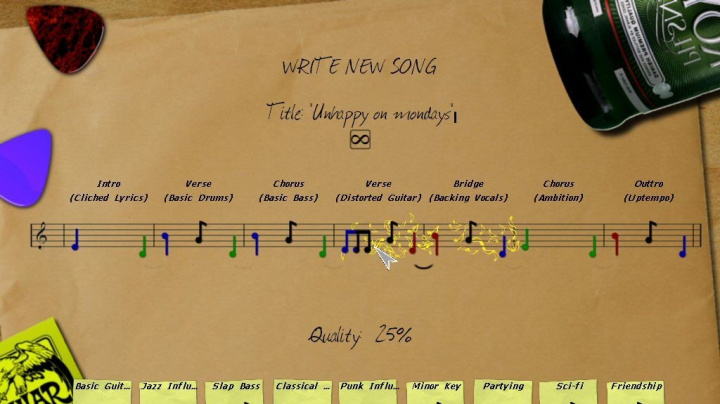 WRITE NEW SONG
Title: 'Unhappy on mondays'
Intro Verse Chorus Verse Bridge Chorus Outtro
(Cliched Lyrics) (Basic Drums) (Basic Bass) (Distorted Guitar) (Backing Vocals) (Ambition) (Uptempo)
Quality: 25%
Basic Guit... Jazz Influ... Slap Bass Classical ... Punk Influ... Minor Key Partying Sci-fi Friendship